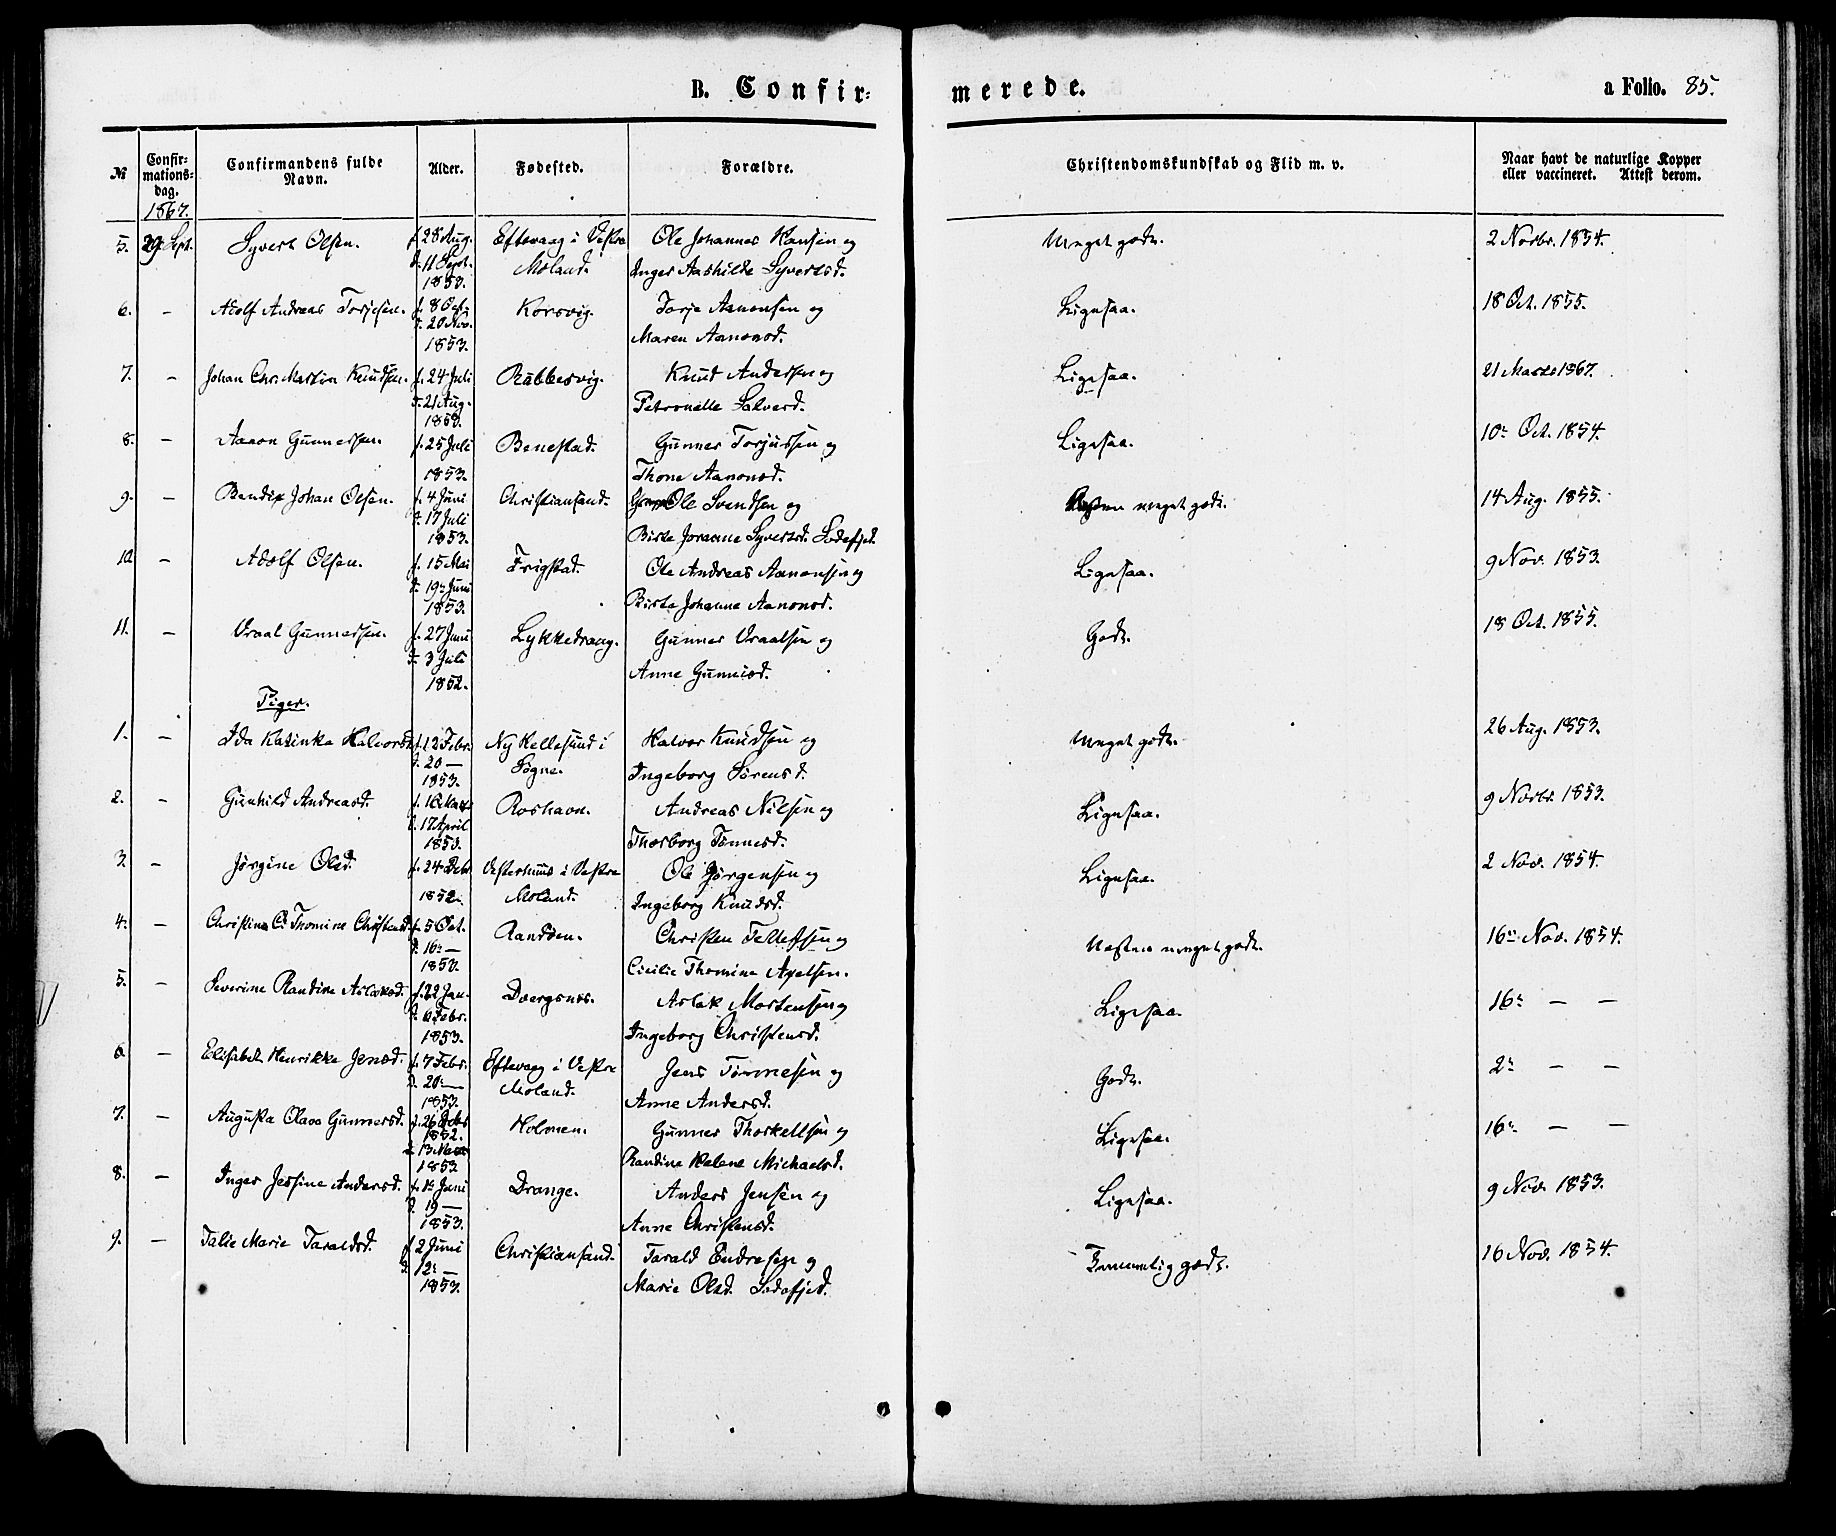 B. Confir=
merede.
a Folio. 85.
№
Confir=
mations=
dag.
1867.
Confirmandens fulde
Navn.
Alder.
Fødested.
Forældre.
Christendomskundskab og Flid m. v.
Naar havt de naturlige Kopper
eller vaccineret. Attest derom.
5. 29 Sept. Syvert Olsen. f. 28 Aug. Eftevaag i Vestre Ole Johannes Hansen og Meget godt. 2 Novbr. 1854.
d. 11 Sept. Moland. Inger Aashilde Syvertsd.
1853.
6. — Adolf Andreas Torjesen. f. 8 Oct. Korsvig. Torje Aanonsen og Ligesaa. 18 Oct. 1855.
d. 20 Nov. Maren Aanonsd.
1853.
7. — Johan Chr. Martin Knudsen. f. 24 Juli Rabbesvig. Knud Andersen og Ligesaa. 21 Marts 1867.
d. 21 Aug. Petronelle Salvesd.
1853.
8. — Aanon Gunnersen. f. 25 Juli Benestad. Gunner Torjussen og Ligesaa. 10de Oct. 1854.
1853. Thone Aanonsd.
9. — Bendix Johan Olsen. f. 4 Juni Christiansand. Ole Svendsen og meget godt. 14 Aug. 1855.
d. 17 Juli Birte Joranne Syvertsd. Sodefjed.
1853.
10. — Adolf Olsen. f. 15 Mai Frigstad. Ole Andreas Aanonsen og Ligesaa. 9 Nov. 1853.
d. 19de Juni Birte Johanne Aanonsd.
1853.
11. — Vraal Gunnersen. f. 27 Juni Lykkedrang. Gunner Vraalsen og Godt. 18 Oct. 1855.
d. 3 Juli Anne Gunnisd.
1852.
Piger.
1. — Ida Katinka Halvorsd. f. 12 Febr. Ny Hellesund i Halvor Knudsen og Meget godt. 26 Aug. 1853.
d. 20 — Søgne. Ingeborg Sørensd.
1853.
2. — Gunhild Andreasd. f. 16 Marts Roshavn. Andreas Nilsen og Ligesaa. 9 Novbr. 1853.
d. 17 April Thorborg Tønnesd.
1853.
3. — Jørgine Olsd. f. 24 Debr. Vesterhuus i Vestre Ole Jørgensen og Ligesaa. 2 Nov. 1854.
1852. Moland. Ingeborg Knudsd.
4. — Christine C. Thomine Christensd. f. 5 Oct. Randøen. Christen Tellefsen og Næsten meget godt. 16de Nov. 1854.
d. 16de — Cicilie Thomine Axelsen.
1853.
5. — Severine Randine Aslaksd. f. 22 Jan. Dvergsnes. Aslak Mortensen og Ligesaa. 16de — —
d. 6 Febr. Ingeborg Christensd.
1853.
6. — Elisabet Henrikke Jensd. f. 7 Febr. Eftevaag i Vestre Jens Tønnesen og Godt. 2de — —
d. 20de — Moland. Anne Andersd.
1853.
7. — Augusta Olava Gunnersd. f. 26 Debr. Holmen. Gunner Thorkellsen og Ligesaa. 16de — —
1852.
d. 13 Marts Randine Helene Michaelsd.
1853
8. — Inger Jessine Andersd. f. Juni Drange. Anders Jensen og Ligesaa. 9 Nov. 1853.
d. 19 — Anne Christensd.
1853.
9. — Talie Marie Taraldsd. f. 2 Juni Christiansand. Tarald Endresen og Temmelig godt. 16 Nov. 1854.
d. 12te — Marie Olsd. Sodefjed.
1853.